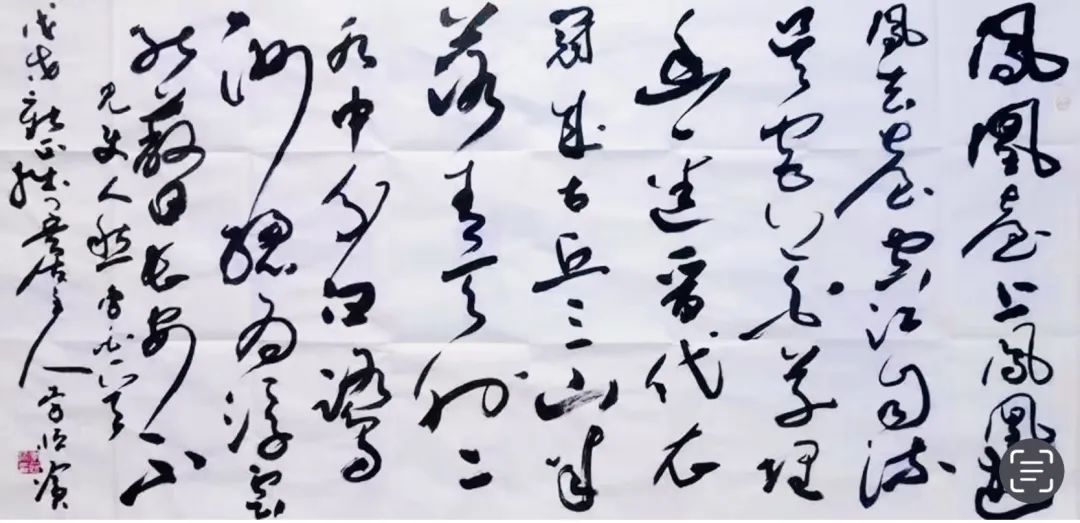 鳳凰臺上鳳凰遊
鳳去臺空江自流
吳宮花草埋
幽徑晉代衣
冠成古丘三山半
落青天外二
水中分白鷺
洲總為浮雲
能蔽日長安不
見使人愁 李白
戊戌新正 主人